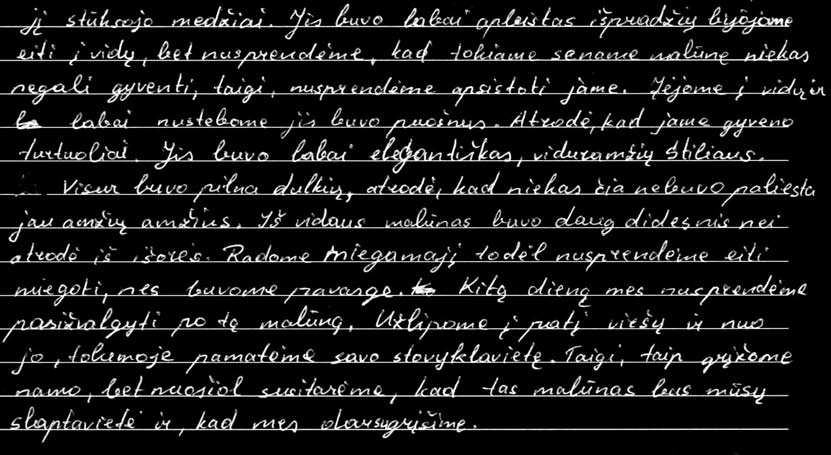 jį stūksojo medžiai. Jis buvo labai apleistas išpradžių bijojome
eiti į vidų, bet nusprendėme, kad tokiame sename malūne niekas
negali gyventi, taigi, nusprendėme apsistoti jame. Įėjome į vidų ir
labai nustebome jis buvo puošnus. Atrodė, kad jame gyveno
turtuoliai. Jis buvo labai elegantiškas, viduramžių stiliaus.
Visur buvo pilna dulkių, atrodė, kad niekas čia nebuvo paliesta
jau amžių amžius. Iš vidaus malūnas buvo daug didesnis nei
atrodė iš išorės. Radome miegamąjį todėl nusprendėme eiti
miegoti, nes buvome pavargę. Kitą dieną mes nusprendėme
pasižvalgyti po tą malūną. Užlipome į patį viršų ir nuo
jo, tolumoje pamatėme savo stovyklavietę. Taigi, taip grįžome
namo, bet nuošiol susitarėme, kad tas malūnas bus mūsų
slaptavietė ir, kad mes dar sugrįšime.